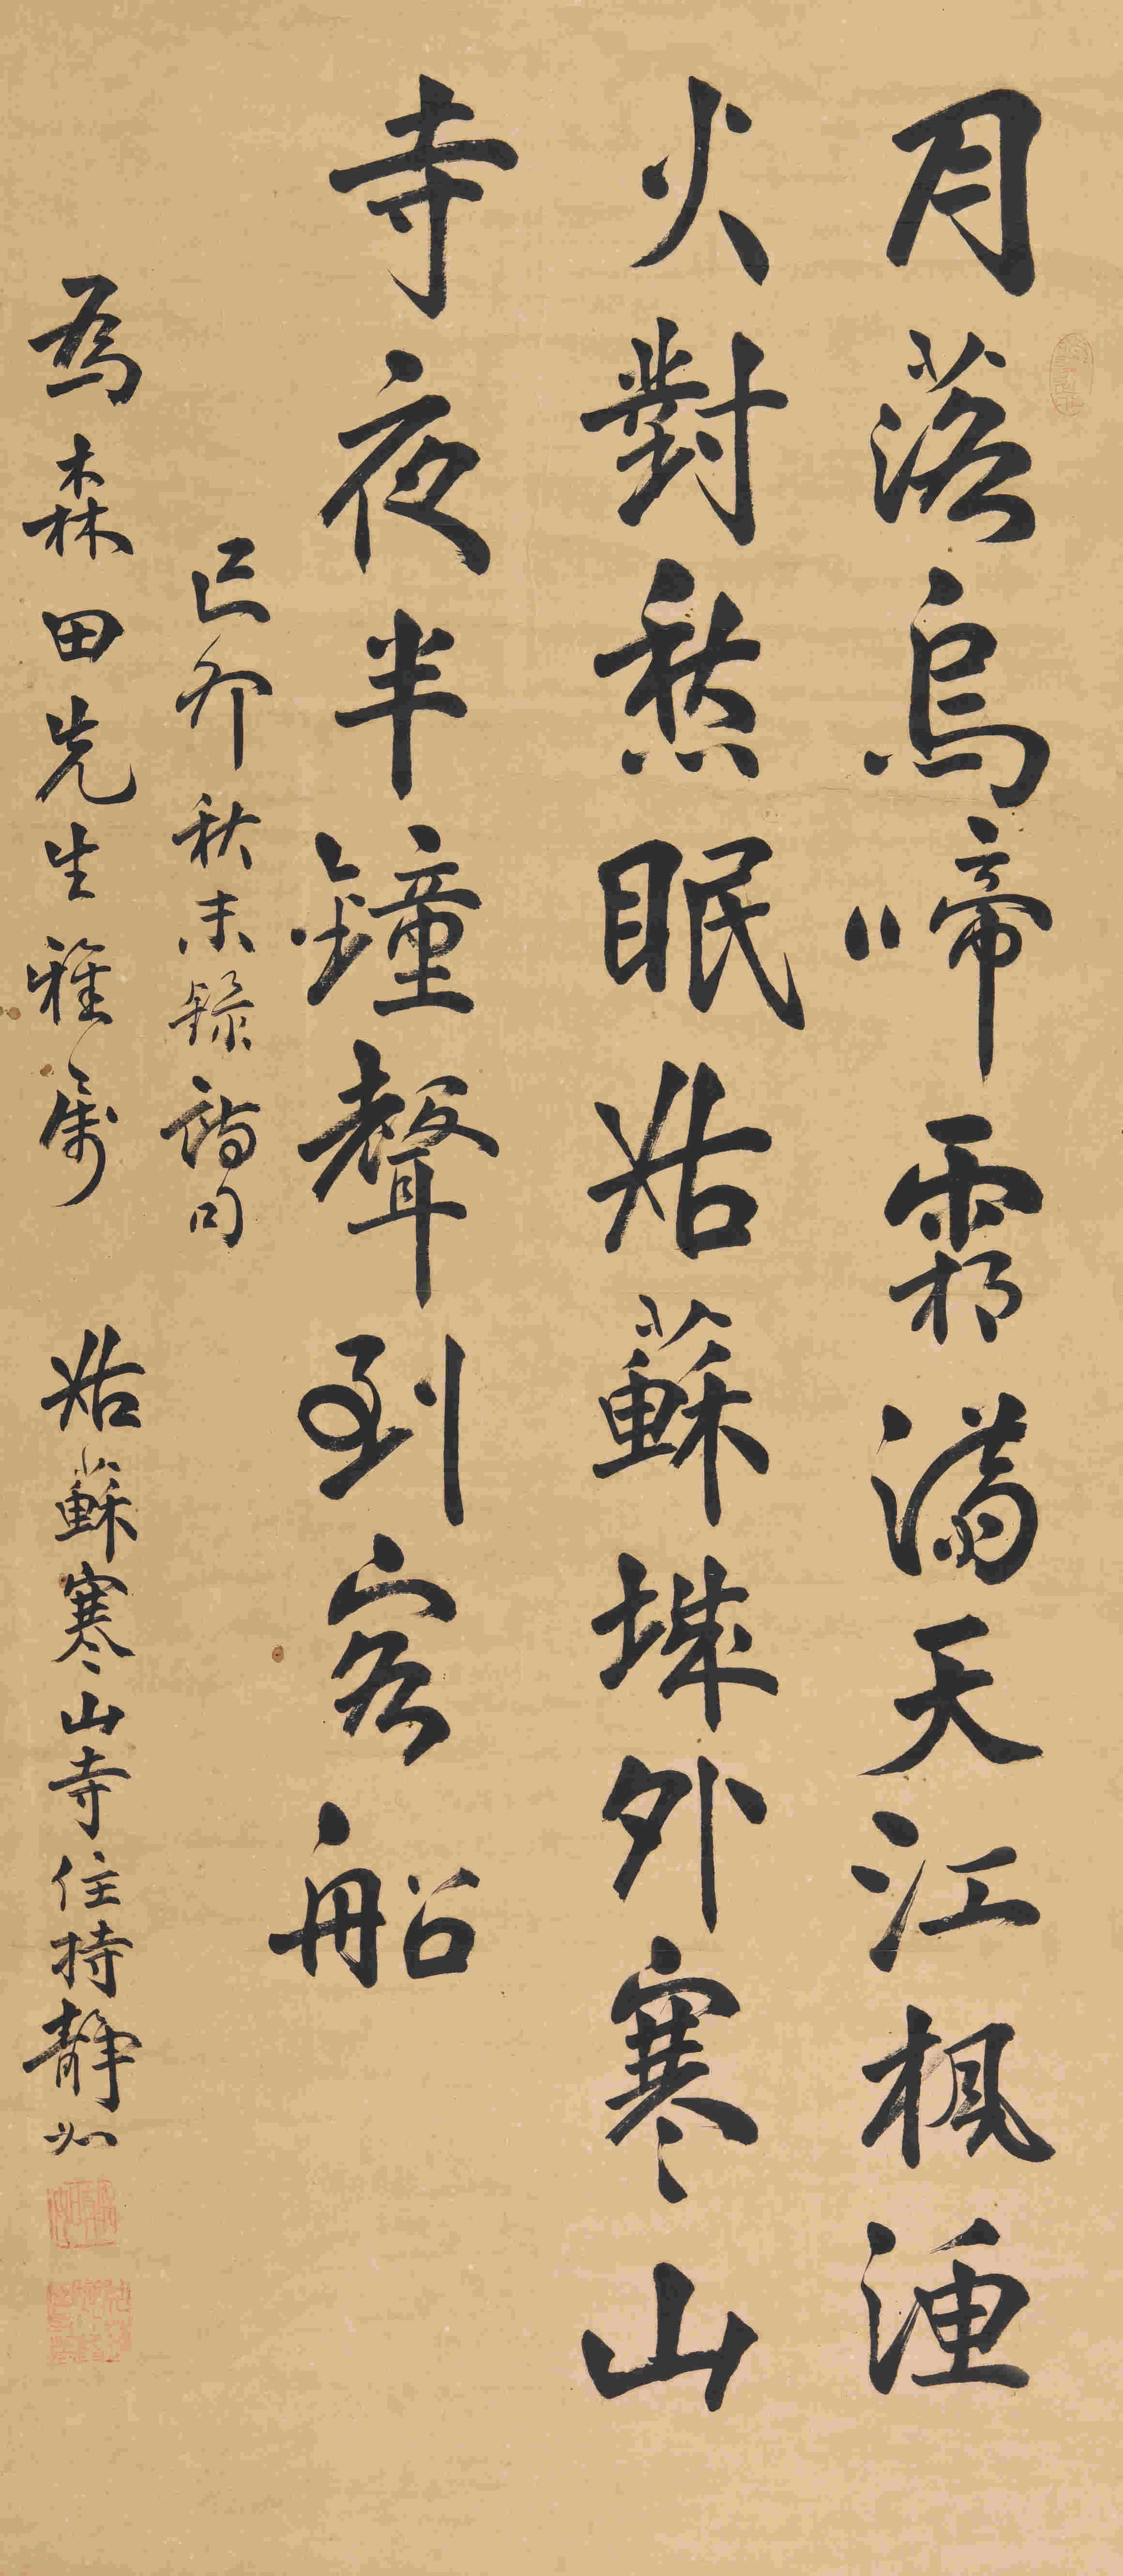 月落烏啼霜滿天江楓漁
火對愁眠姑蘇城外寒山
寺夜半鐘聲到客船
己卯秋末録詩句
為森田先生雅属 姑蘇寒山寺住持靜如